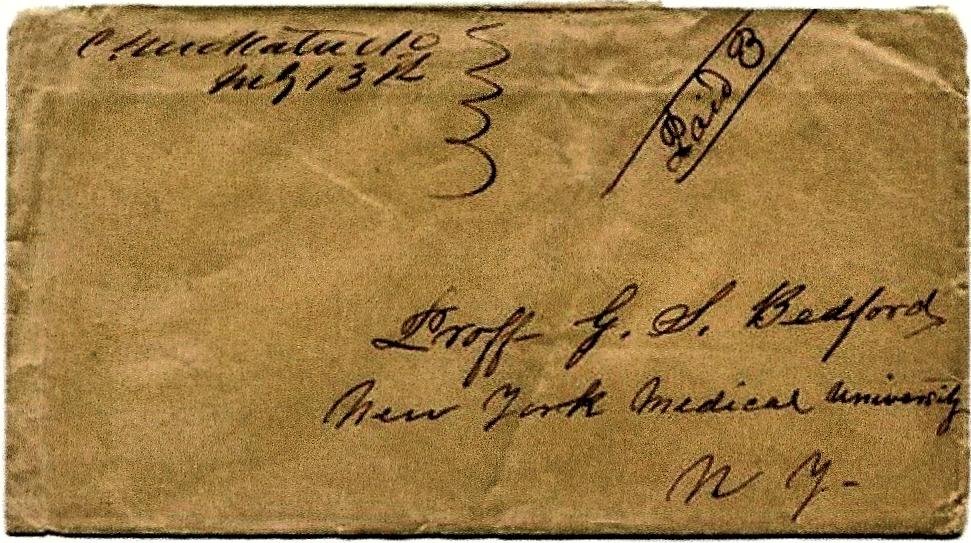 Chuckatuck
July 13th
Paid 3
Proff G. S. Bedford
New York Medical University
N Y-